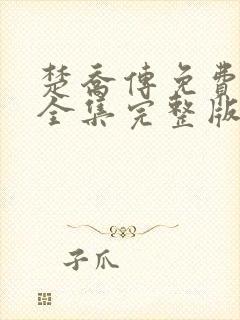 楚喬傳免費
全集完整版
子爪